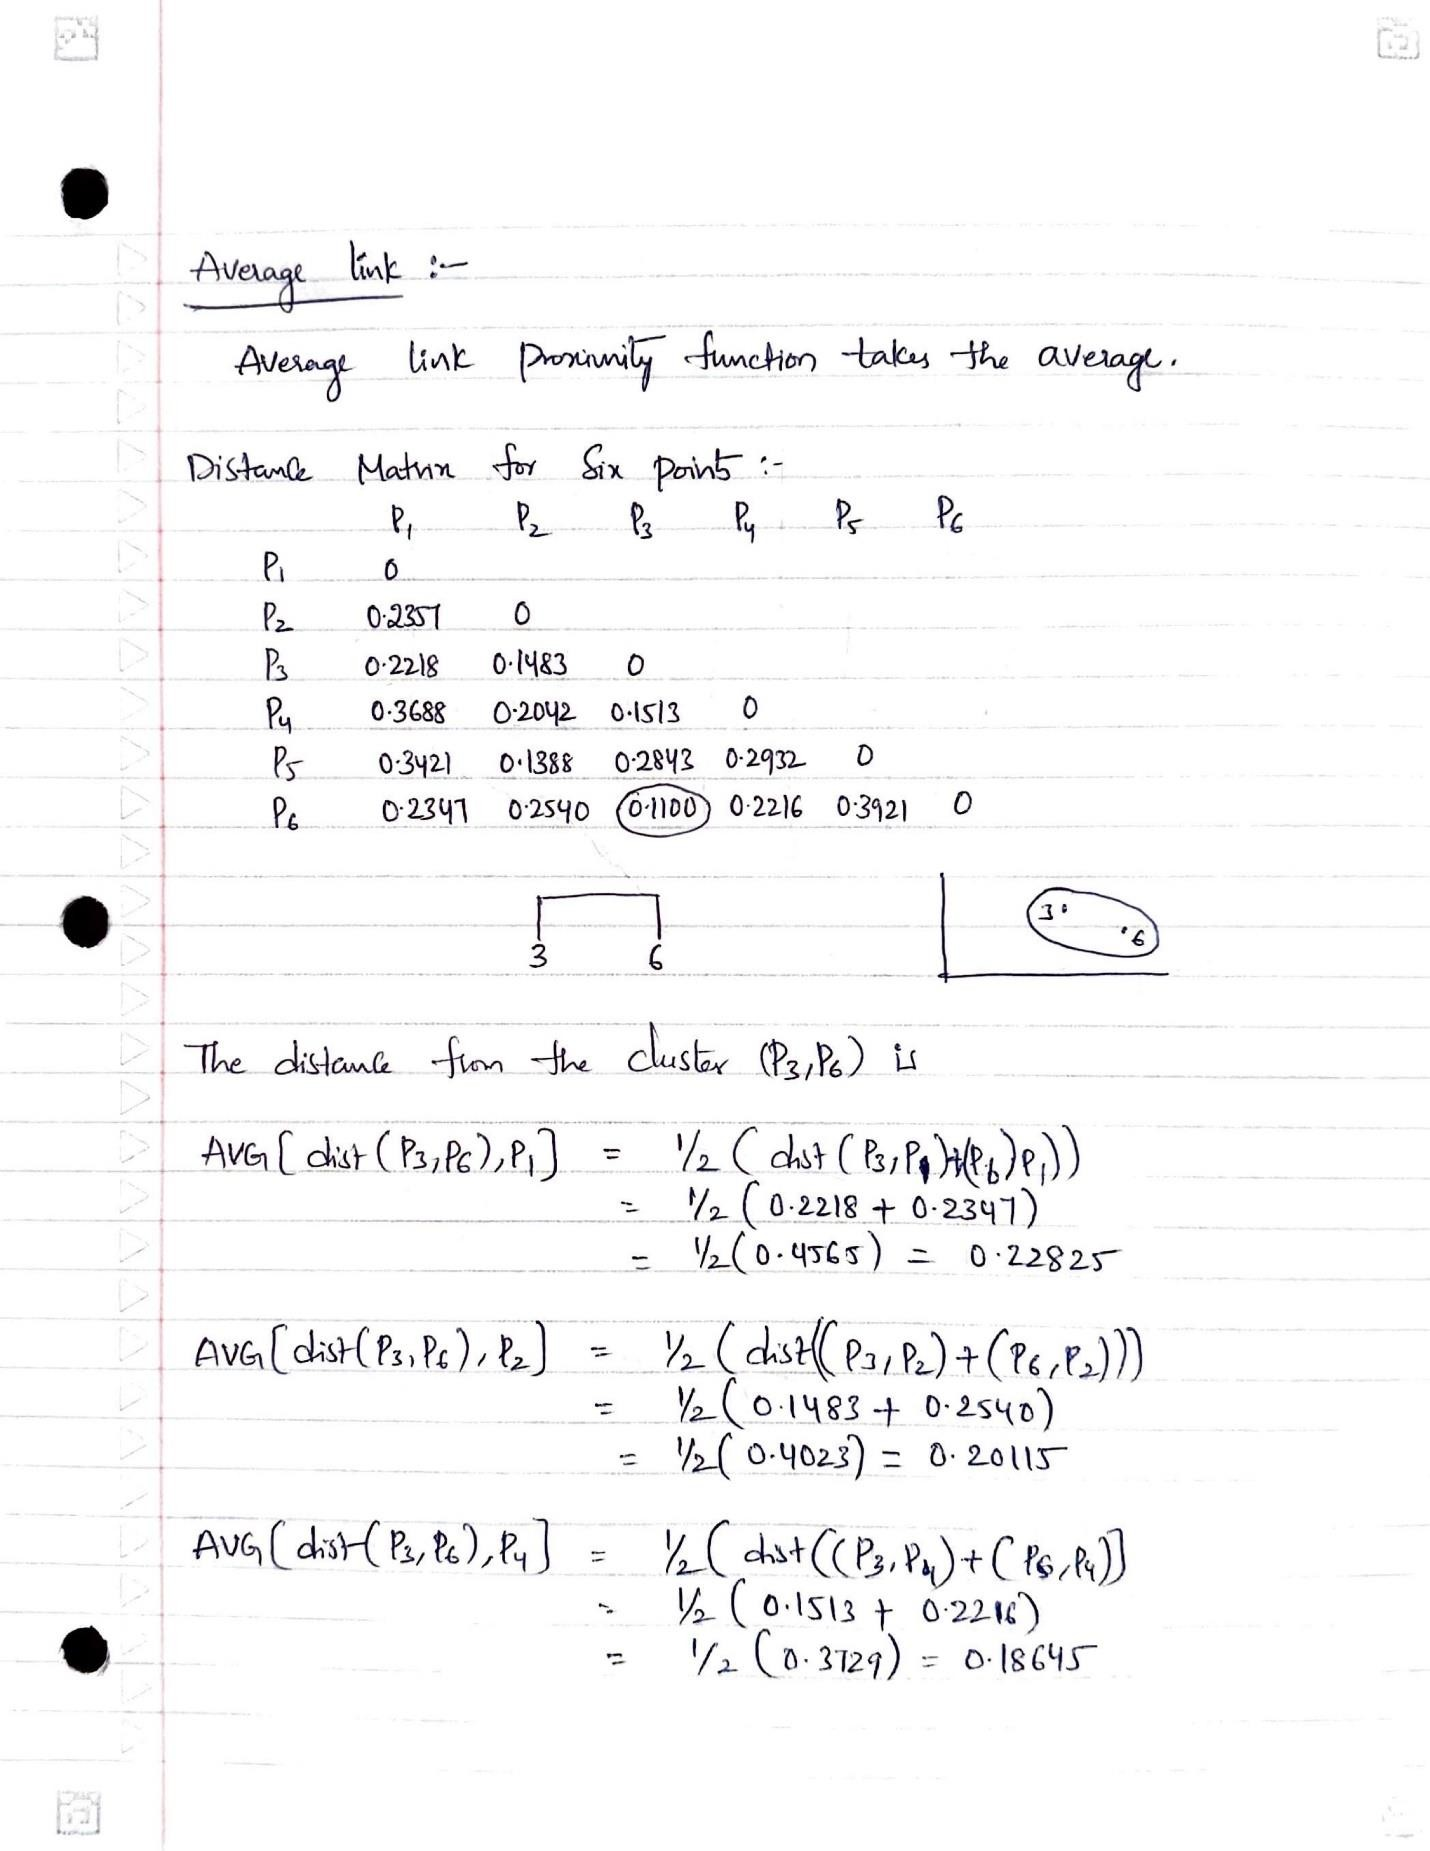 Average link :-
Average link proximity function takes the average.
Distance Matrix for Six points :-
P1 P2 P3 P4 P5 P6
P1 0
P2 0.2357 0
P3 0.2218 0.1483 0
P4 0.3688 0.2042 0.1513 0
P5 0.3421 0.1388 0.2843 0.2932 0
P6 0.2347 0.2540 0.1100 0.2216 0.3921 0
3 6
3 6
The distance from the cluster (P3,P6) is
AVG[dist(P3,P6),P1] = 1/2 (dist(P3,P1)+(P6)P1))
= 1/2 (0.2218 + 0.2347)
= 1/2(0.4565) = 0.22825
AVG[dist(P3,P6),P2] = 1/2 (dist((P3,P2)+(P6,P2)))
= 1/2 (0.1483 + 0.2540)
= 1/2(0.4023) = 0.20115
AVG(dist(P3,P6),P4] = 1/2 (dist((P3,P4)+(P6,P4)]
= 1/2 (0.1513 + 0.2216)
= 1/2 (0.3729) = 0.18645